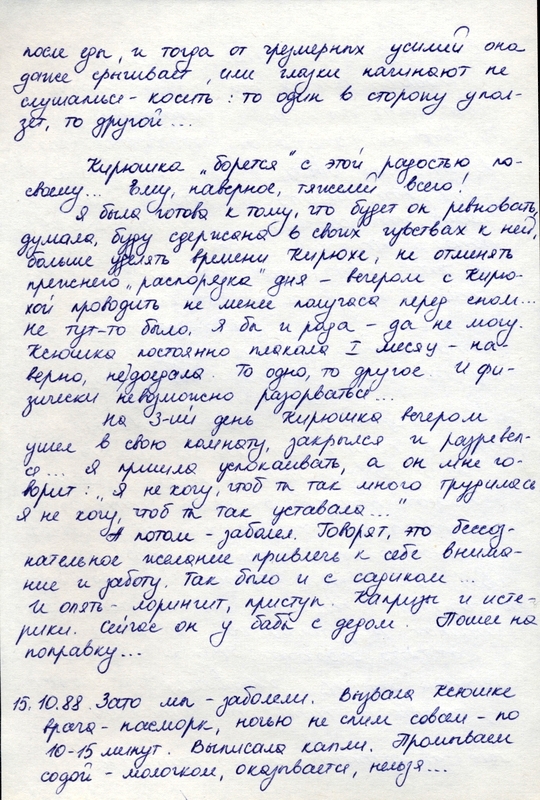 после еды, и тогда от чрезмерных усилий она
даже срыгивает, или глазки начинают не
слушаться - косить: то один в сторону упол-
зет, то другой...
Кирюшка „борется" с этой радостью по-
своему... Ему, наверное, тяжелей всего!
Я была готова к тому, что будет он ревновать,
думала, буду сдержана в своих чувствах к ней,
больше уделять времени Кирюхе, не отменять
прежнего „распорядка" дня - вечером с Кирю-
хой проводить не менее получаса перед сном...
Не тут-то было. Я бы и рада - да не могу.
Ксюшка постоянно плакала I месяц - на-
верно, недоедала. То одно, то другое. И фи-
зически невозможно разорваться...
На 3-ий день Кирюшка вечером
ушел в свою комнату, закрылся и разревел-
ся... Я пришла успокаивать, а он мне го-
ворит: „Я не хочу, чтоб ты так много трудилась
Я не хочу, чтоб ты так уставала..."
А потом - заболел. Говорят, это бессоз-
нательное желание привлечь к себе внима-
ние и заботу. Так было и с садиком...
И опять - ларингит, приступ. Капризы и исте-
рики. Сейчас он у бабы с дедом. Пошел на
поправку...
15.10.88. Зато мы - заболели. Вызвала Ксюшке
врача - насморк, ночью не спим совсем - по
10-15 минут. Выписала капли. Промываем
содой - молочком, оказывается, нельзя...